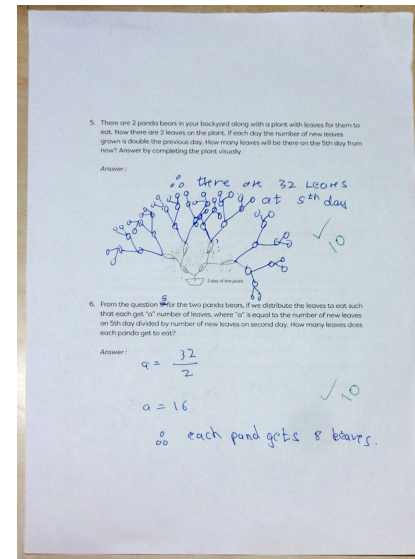 5. There are 2 panda bears in your backyard along with a plant with leaves for them to
eat. Now there are 2 leaves on the plant. If each day the number of new leaves
grown is double the previous day. How many leaves will be there on the 5th day from
now? Answer by completing the plant visually.
Answer:
∴ there are 32 Leavs
at 5th day
✓10
1 day of the plant
6. From the question 5 for the two panda bears, if we distribute the leaves to eat such
that each get "a" number of leaves, where "a" is equal to the number of new leaves
on 5th day divided by number of new leaves on second day. How many leaves does
each panda get to eat?
Answer:
a = 32
2
✓10
a = 16
∴ each pand gets 8 leaves.